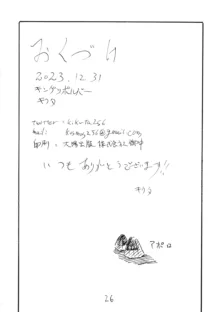 おくづけ
2023.12.31
キンゲツボルバー
キクタ
twitter: kikuta256
mail:
印刷: 大陽出版株式会社 御中
いつもありがとうございます!!
キクタ
アポロ
26